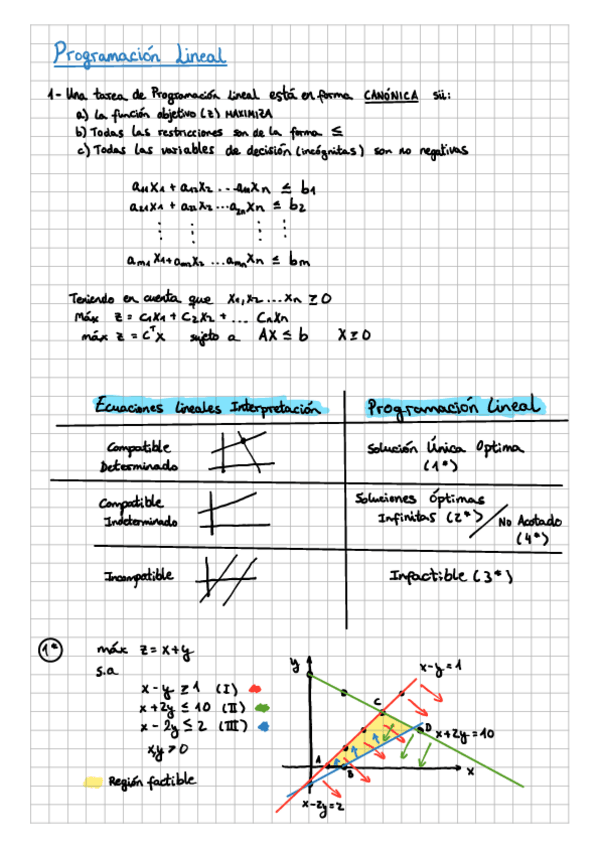 Programación Lineal
1- Una tarea de Programación Lineal está en forma CANÓNICA sii:
a) La función objetivo (z) MAXIMIZA
b) Todas las restricciones son de la forma ≤
c) Todas las variables de decisión (incógnitas) son no negativas
a₁₁x₁ + a₁₂x₂ ... a₁ₙxₙ ≤ b₁
a₂₁x₁ + a₂₂x₂ ... a₂ₙxₙ ≤ b₂
⋮ ⋮ ⋮ ⋮
aₘ₁x₁ + aₘ₂x₂ ... aₘₙxₙ ≤ bₘ
Teniendo en cuenta que x₁, x₂ ... xₙ ≥ 0
Máx z = c₁x₁ + c₂x₂ + ... cₙxₙ
máx z = cᵀx sujeto a AX ≤ b X ≥ 0
Ecuaciones lineales Interpretación Programación Lineal
Compatible Determinado
Solución Única Optima (1*)
Compatible Indeterminado
Soluciones Óptimas Infinitas (2*) / No Acotado (4*)
Incompatible Infactible (3*)
1*
máx z = x+y
s.a
x - y ≥ 1 (I)
x + 2y ≤ 10 (II)
x - 2y ≤ 2 (III)
x,y > 0
Región factible
y
x-y=1
C
D
x+2y=10
A
B
x
x-2y=2